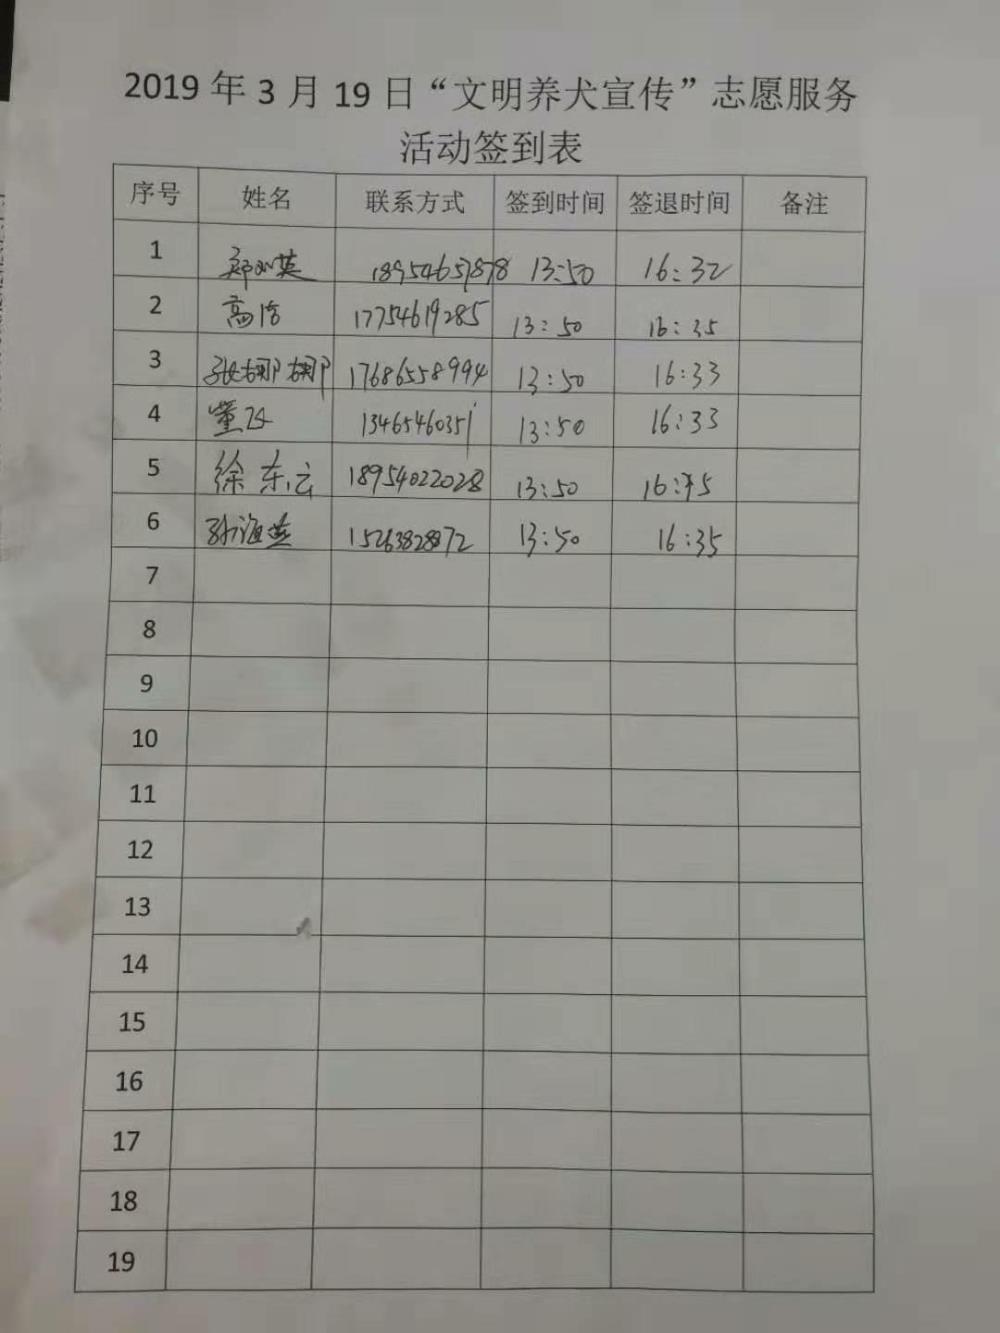 2019 年 3 月 19 日“文明养犬宣传”志愿服务
活动签到表
序号 姓名 联系方式 签到时间 签退时间 备注
1 18954657878 13:50 16:32
2 高洁 17754619285 13:50 16:35
3 张娜娜 17686558994 13:50 16:33
4 董飞 13465460351 13:50 16:33
5 徐东云 18954022028 13:50
6 孙海燕 13:50 16:35
7
8
9
10
11
12
13
14
15
16
17
18
19